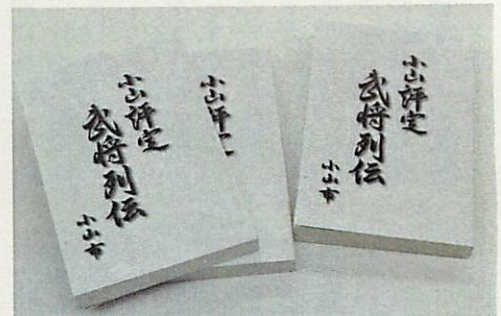 小山評定
武将列伝
小山市
小山評定
小山評定
武将列伝
小山市